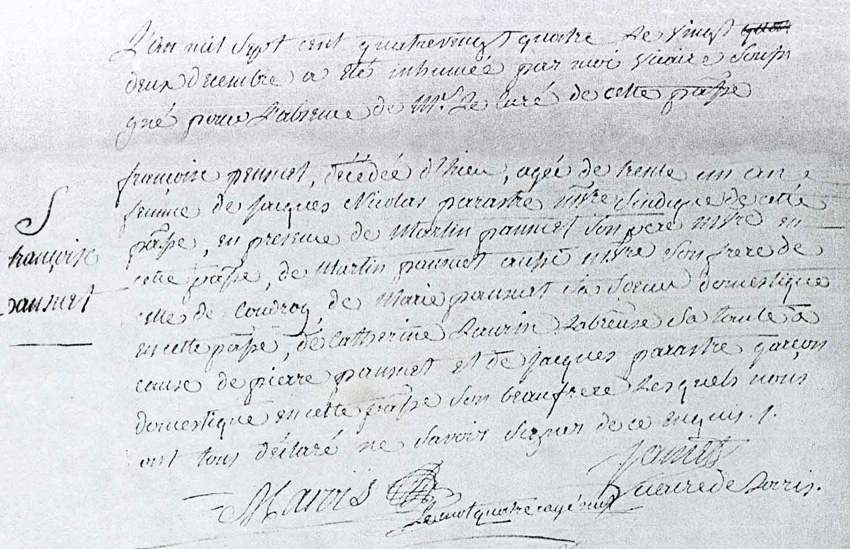 L'an mil sept cent quatrevingt quatre le vingt quat
deux decembre a été inhumée par moi vicaire soussi
gné pour l'absence de Mr. le curé de cette psse
françoise paumet, décédée d'hier, agée de trente un an
femme de jacques Nicolas parastre sindique de cette
psse, en presence de Martin paumet son pere en
cette psse, de Martin paumet aussi son frere de
celle de Coudroy, de Marie paumet sa soeur domestique
en cette psse, de Catherine sa tante à
cause de pierre paumet et de jacques parastre garçon
domestique en cette psse son beaufrere lesquels nous
ont tous déclaré ne savoir signer de ce enquis ./.
S
françoise
paumet
Marois
le mot quatre rayé nul
vicaire de Lorris.